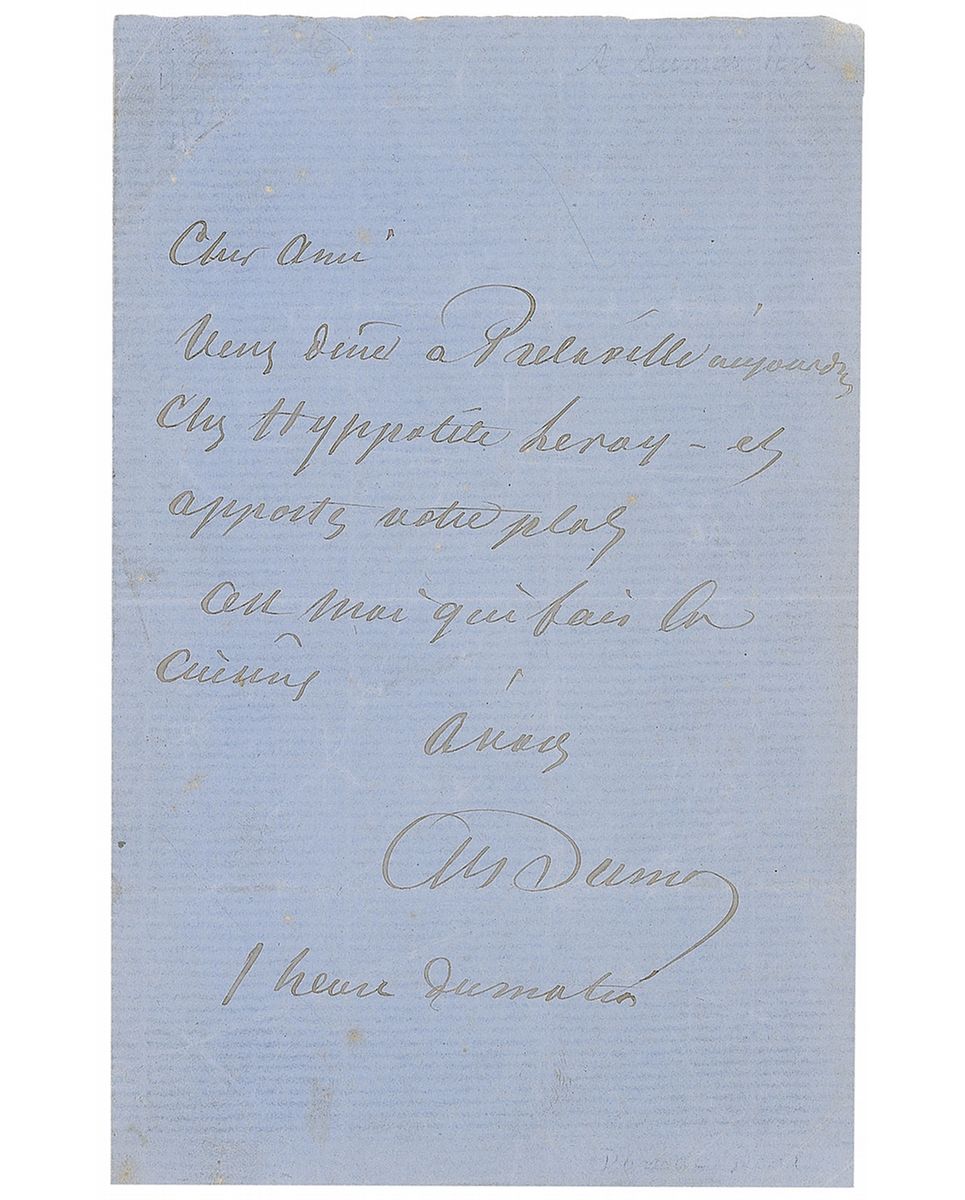 Cher Ami
Venez diner à aujourd'hui
Chez Hyppolite Leroy – et
apportez votre plat
C'est moi qui fais la
Cuisine
A vous
Alex Dumas
1 heure du matin